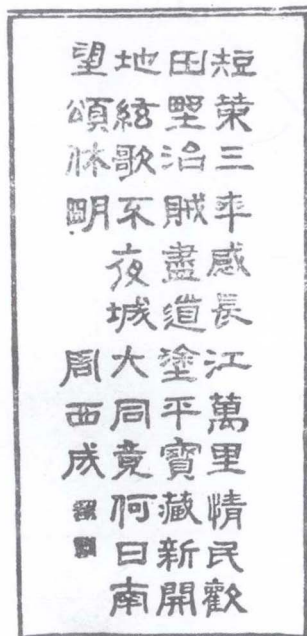 短策三年感長江萬里情民歡
田野治賊盡道塗平寶藏新開
地絃歌不夜城大同竟何日南
望頌休明
周西成